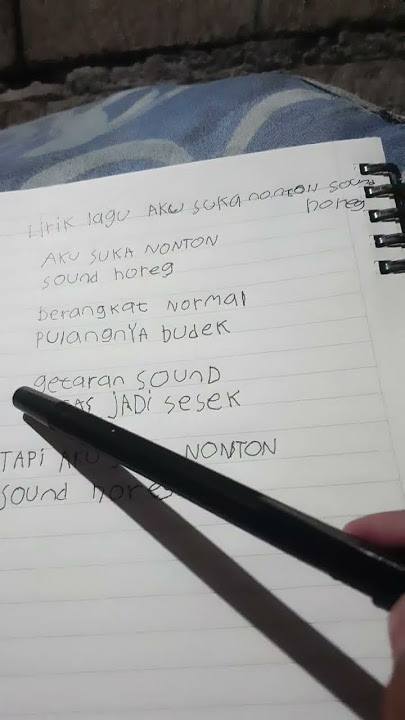 Lirik lagu AKU SUKA NONTON SOUND
horeg
AKU SUKA NONTON
sound horeg
berangkat NORMAL
PULANGNYA budek
getaran SOUND
JADI sesek
TAPI NONTON
SOUND horeg